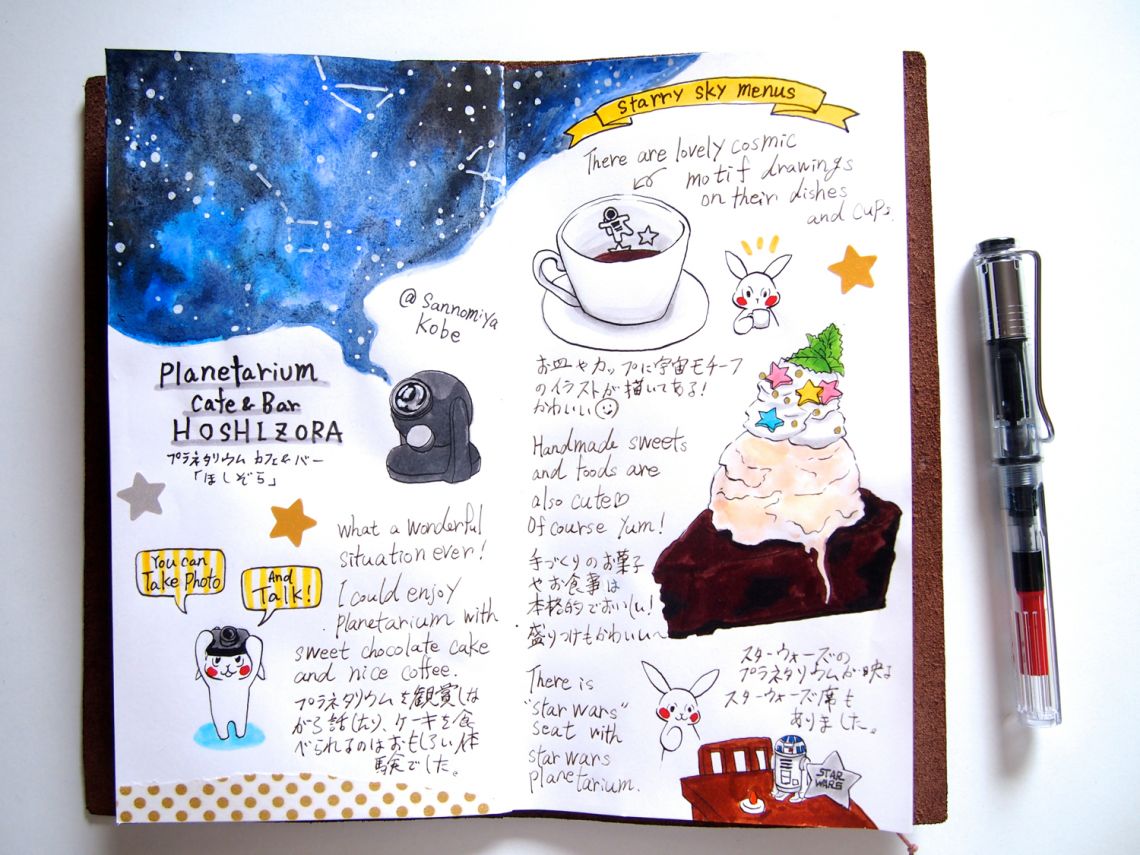 @ Sannomiya
Kobe
Planetarium
Cafe & Bar
HOSHIZORA
プラネタリウム カフェ&バー
「ほしぞら」
What a wonderful
situation ever!
I could enjoy
planetarium with
sweet chocolate cake
and nice coffee.
プラネタリウムを観賞しな
がら話したり、ケーキを食
べられるのはおもしろい体
験でした。
You can
Take Photo
And
Talk!
Starry Sky Menus
There are lovely cosmic
motif drawings
on their dishes
and cups.
お皿やカップに宇宙モチーフ
のイラストが描いてある!
かわいい
Handmade sweets
and foods are
also cute♡
Of course Yum!
手づくりのお菓子
やお食事は
本格的でおいしい!
盛りつけもかわいい〜
There is
"star wars"
seat with
star wars
planetarium.
スターウォーズの
プラネタリウムが映る
スターウォーズ席も
ありました。
STAR
WARS